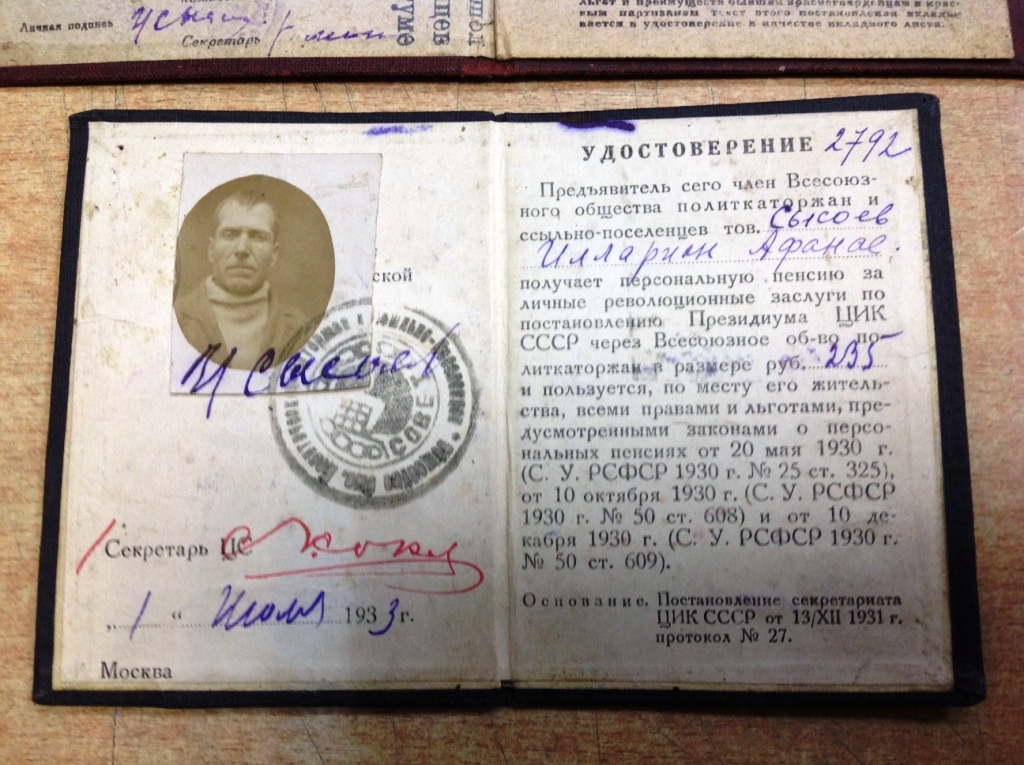 Личная подпись
Секретарь
льгот и преимуществ бывшим красногвардейцам и крас-
ным партизанам Текст этого постановления вклады-
вается в удостоверение в качестве вкладного листа.
ской
И Сысоев
СОВЕТ
Секретарь ЦС
„ 1 “ Июля 1933 г.
Москва
УДОСТОВЕРЕНИЕ 2792
Предъявитель сего член Всесоюз-
ного общества политкаторжан и
ссыльно-поселенцев тов. Сысоев
Илларион Афанас.
получает персональную пенсию за
личные революционные заслуги по
постановлению Президиума ЦИК
СССР через Всесоюзное об-во по-
литкаторжан в размере руб. 235
и пользуется, по месту его житель-
ства, всеми правами и льготами, пре-
дусмотренными законами о персо-
нальных пенсиях от 20 мая 1930 г.
(С. У. РСФСР 1930 г. № 25 ст. 325),
от 10 октября 1930 г. (С. У. РСФСР
1930 г. № 50 ст. 608) и от 10 де-
кабря 1930 г. (С. У. РСФСР 1930 г.
№ 50 ст. 609).
Основание. Постановление секретариата
ЦИК СССР от 13/XII 1931 г.
протокол № 27.